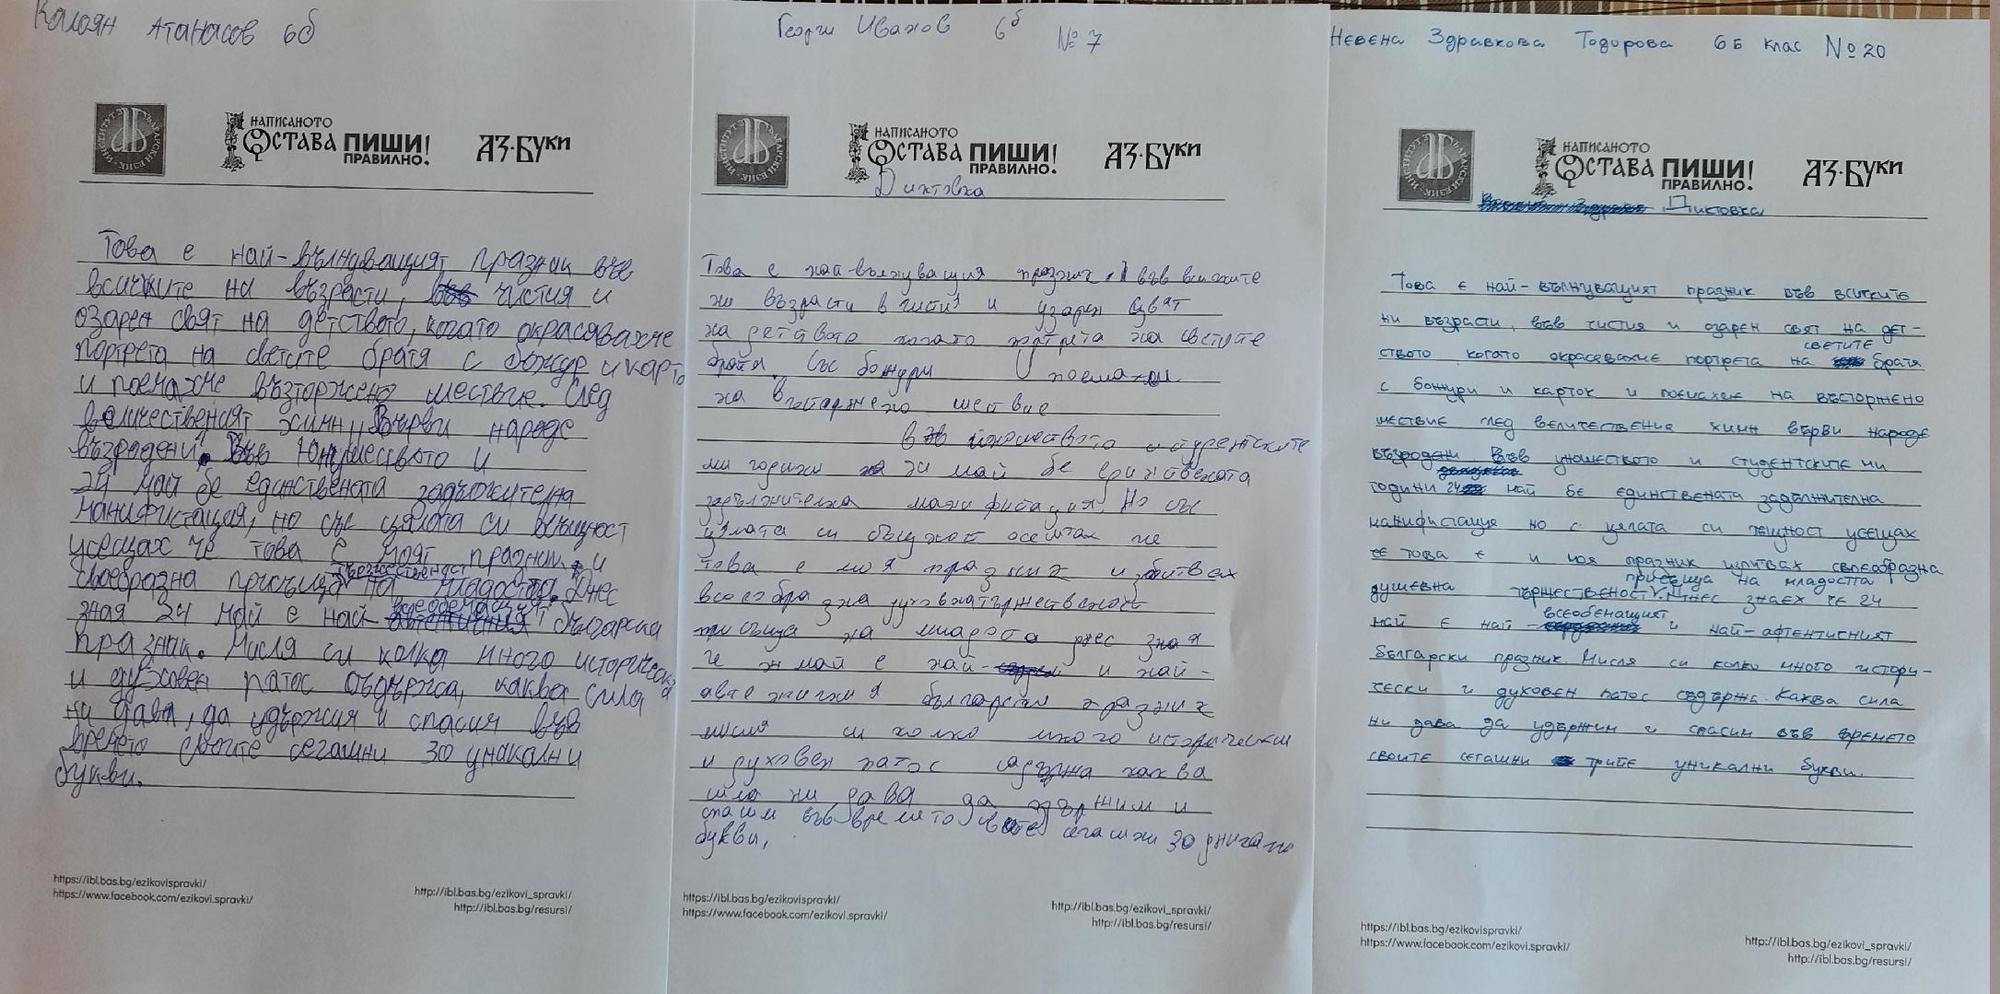 Калоян Атанасов 6б
НАПИСАНОТО
ОСТАВА ПИШИ!
ПРАВИЛНО!
АЗ·БУКИ
Това е най-вълнуващият празник във
всичките на възрасти, чистия и
озарен свят на детството, когато окрасявахме
портрета на светите братя с божур и карто
и поемахме възторжено шествие. След
величественият химн „Върви народе
възродени". Във Юнушеството и
24 май бе единствената задължителна
манифистация, но със цялата си същност
усещах че това е моят празник и
своебразна присъща тържественост на младоста. Днес
зная 24 май е най- български
празнак. Мисля си колко много исторически
и духовен патос съдържа, каква сила
ни дава, да удържия и спасия във
времето своите сегашни 30 уникални
букви.
https://ibl.bas.bg/ezikovispravki/
https://www.facebook.com/ezikovi.spravki/
http://ibl.bas.bg/ezikovi_spravki/
http://ibl.bas.bg/resursi/
Георги Иванов 6б № 7
НАПИСАНОТО
ОСТАВА ПИШИ!
ПРАВИЛНО!
АЗ·БУКИ
Диктовка
Това е най вълнуващия празник във всичките
ни възрасти в чистия и узарен свят
на детството когато портрета на светите
братя със божури поемахми
на възторжено шествие
в юношеството и студентските
ми години 24 май бе единствената
задължителна манифистация. Но със
цялата си същност осещах че
това е моя празник изпитвах
всоеобразна духовнатържественост
присъща на младоста днес зная
че 24 май е най- и най-
автентичния български празник
мисля си колко много исторически
и духовен патос съдържа каква
сила ни дава да удържим и
спасим във времето своите сегашни 30 уникални
букви,
https://ibl.bas.bg/ezikovispravki/
https://www.facebook.com/ezikovi.spravki/
http://ibl.bas.bg/ezikovi_spravki/
http://ibl.bas.bg/resursi/
Невена Здравкова Тодорова 6Б клас № 20
НАПИСАНОТО
ОСТАВА ПИШИ!
ПРАВИЛНО!
АЗ·БУКИ
Диктовка
Това е най-вълнуващият празник във всиките
ни възрасти, във чистия и озарен свят на дет-
ството когато окрасевахме портрета на светите братя
с божури и карток и поемахме на въсторжено
шествие след величествения химн върви народе
възродени. Във уношеството и студентските ми
години 24 май бе единствената задължителна
манифистация но с цялата си същност усещах
че това е и моя празник изпитвах своеобразна
душевна тържественост присъща на младостта. Днес знаех че 24
май е най-всеобенащият и най-афтентисният
български празник. Мисля си колко много истори-
чески и духовен патос съдържа. Каква сила
ни дава да удържим и спасим във времето
своите сегашни трийе уникални букви.
https://ibl.bas.bg/ezikovispravki/
https://www.facebook.com/ezikovi.spravki/
http://ibl.bas.bg/ezikovi_spravki/
http://ibl.bas.bg/resursi/